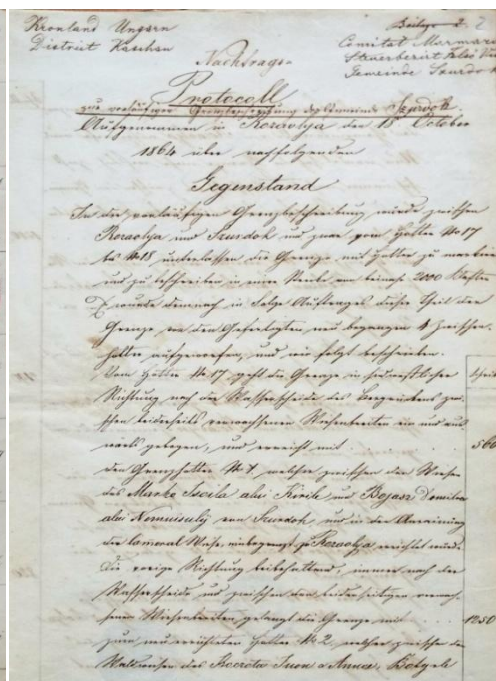 Kronland Ungarn
District Kaschau
Beilage 2. 2
Comitat Marmaros
Steuerbezirk
Gemeinde Szurdok
Nachtrags-
Protocoll
zur vorläufigen Grenzbeschreibung der Gemeinde Szurdok
Aufgenommen in Rozavlja den 18t October
1864 über nachfolgenden
Gegenstand
In der vorläufigen Grenzbeschreibung wurde zwischen
Rozavlja und Szurdok und zwar vom Hotter No 17
bis No 18 unterlassen die Grenze mit Hotter zu markiren
und zu beschreiben in einer Strecke von beinahe 2000 Klafter
Es wurde demnach in Folge Auftrages dieser Theil der
Grenze von den Gefertigten neu begangen 4 Zwischen-
hotter aufgeworfen, und wie folgt beschrieben.
Vom Hotter No 17 geht die Grenze in
Richtung nach der Wasserscheide des Bergrückens zwi-
schen beiderseits verwachsenen Wiesenbreiten ein und aus
wärts gebogen, und erreicht mit
560
den Grenzhotter No 1, welcher zwischen den Wiesen
des Marke alui Kirila und Bojasz Dumitru
alui von Szurdok, und in der Anrainung
der Cameral Wiese, zu Rozavlja errichtet wurde.
Die vorige Richtung beibehaltend, immer nach der
Wasserscheide und zwischen den beiderseitigen verwach-
senen Wiesenbreiten gelangt die Grenze mit
1250
zum neu errichteten Hotter No 2, welcher zwischen den
Waldwiesen des Juon a Annia,